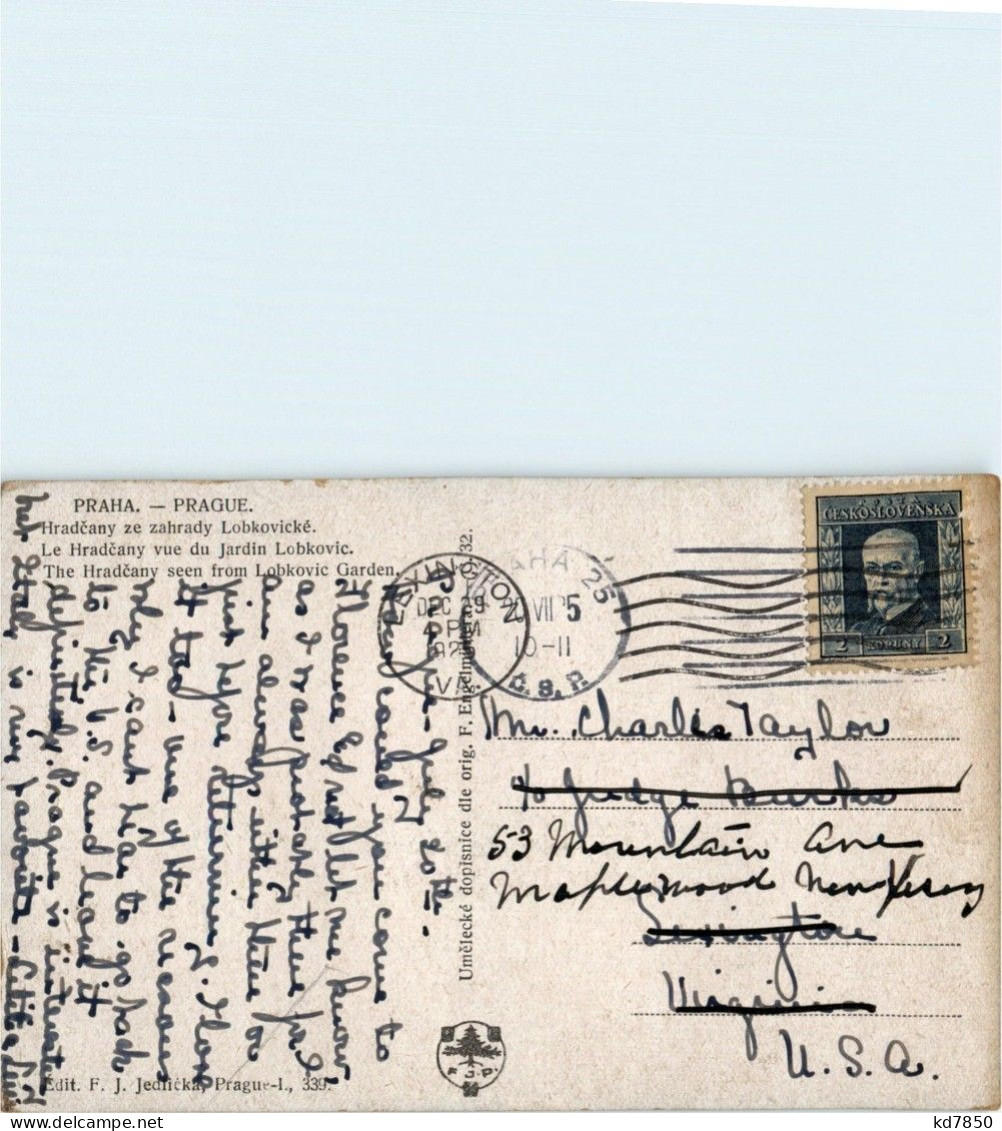 PRAHA. — PRAGUE.
Hradčany ze zahrady Lobkovické.
Le Hradčany vue du Jardin Lobkovic.
The Hradčany seen from Lobkovic Garden.
Prague - July 20th -
Why could you come to
Florence & not let me know
as I was probably there for I
am always either there or
just before returning. I love
it too - one of the reasons
why I can't bear to go back
to the U.S. and leave it
definitely. Prague is interesting
but Italy is my favorite -
Umělecké dopisnice dle orig. F. Engelmüllera
32.
Edit. F. J. Jedlička, Prague-I., 339.
F. J. P.
LEXINGTON
DEC 19
4 PM
192
VA.
PRAHA 25
20 VII 25
10-11
Č.S.R.
POŠTA
ČESKOSLOVENSKA
2 KORUNY 2
Mr. Charles Taylor
% Judge Burks
53 Mountain Ave
Maplewood New Jersey
Lexington
Virginia
U.S.A.
kd7850